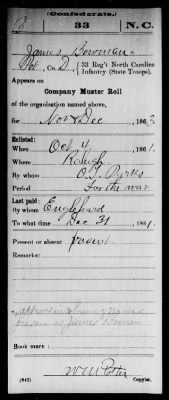 (Confederate.)
33 N.C.
James Bowman
Pvt, Co. D, 33 Reg't North Carolina
Infantry (State Troops).
Appears on
Company Muster Roll
of the organization named above,
for Nov & Dec, 186
Enlisted:
When Oct 4, 1861.
Where Raleigh
By whom
Period For the war
Last paid:
By whom Englehard
To what time Dec 31, 1861.
Present or absent Present
Remarks:
as James
Book mark:
(642) Copyist.